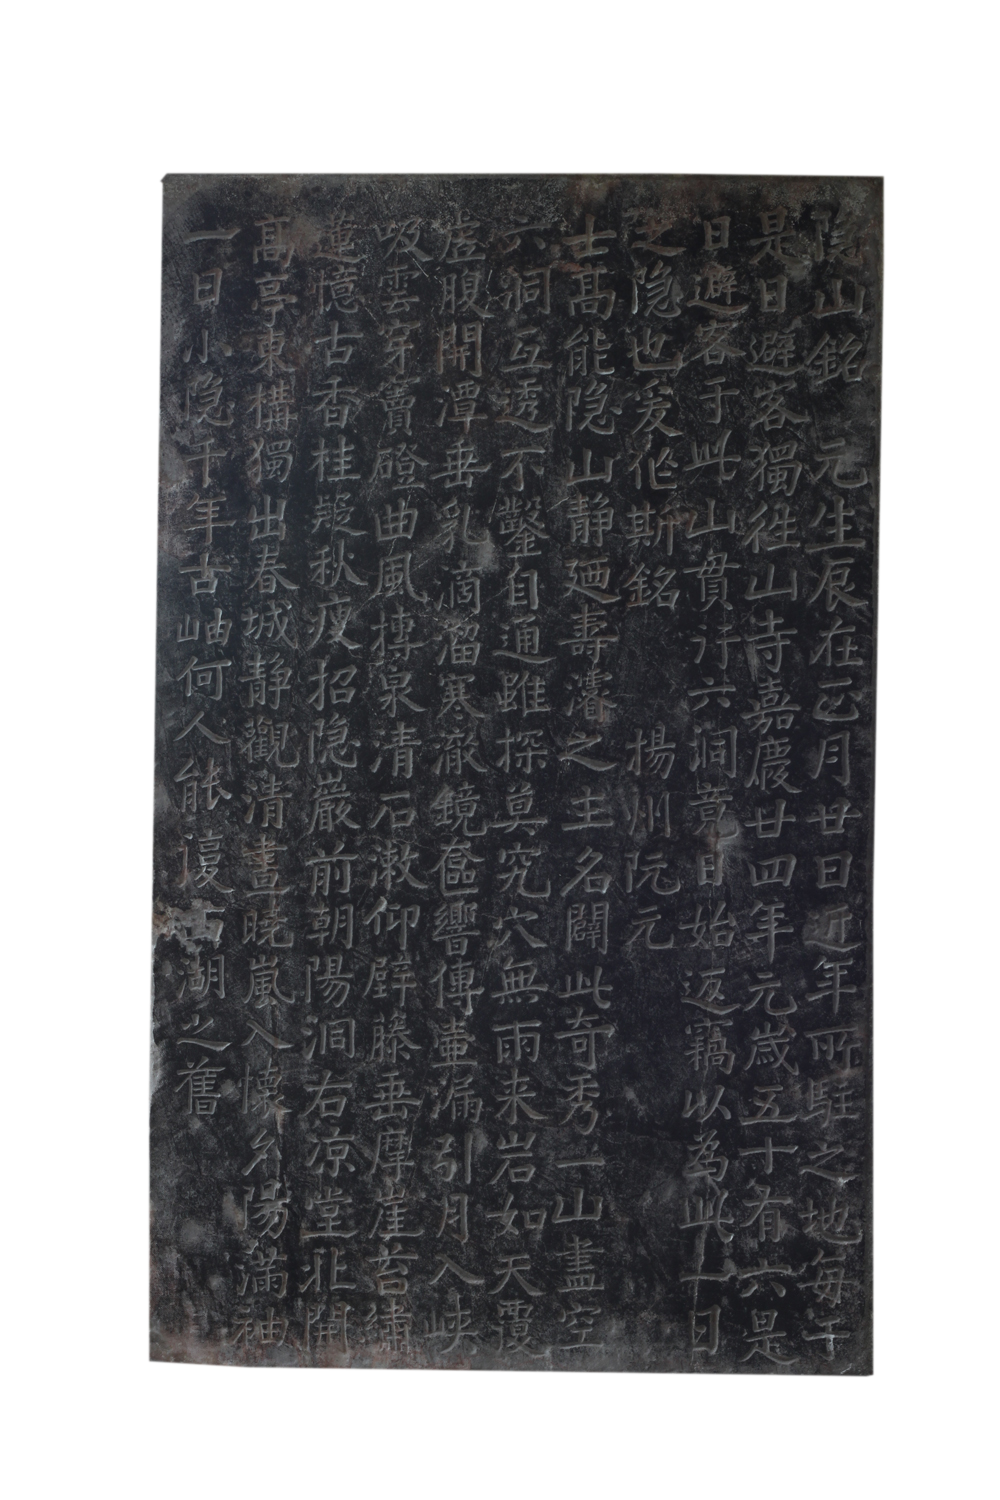 隐山銘 元生辰在正月廿日近年所駐之地每于
是日避客獨往山寺嘉慶廿四年元歲五十有六是
日避客于此山貫行六洞竟日始返竊以為此一日
之隐也爰作斯銘 揚州阮元
士髙能隐山静廼壽濬之主名闢此奇秀一山盡空
六洞互透不鑿自通雖探莫究穴無雨来岩如天覆
虚腹開潭垂乳滴溜寒澈鏡奩響傳壷漏引月入峡
吸雲穿竇磴曲風摶泉清石漱仰壁藤垂摩崖苔繡
蓮憶古香桂發秋瘦招隐巖前朝陽洞右凉堂北開
髙亭東構獨出春城静觀清晝曉嵐入懷夕陽滿袖
一日小隐千年古岫何人能復西湖之舊